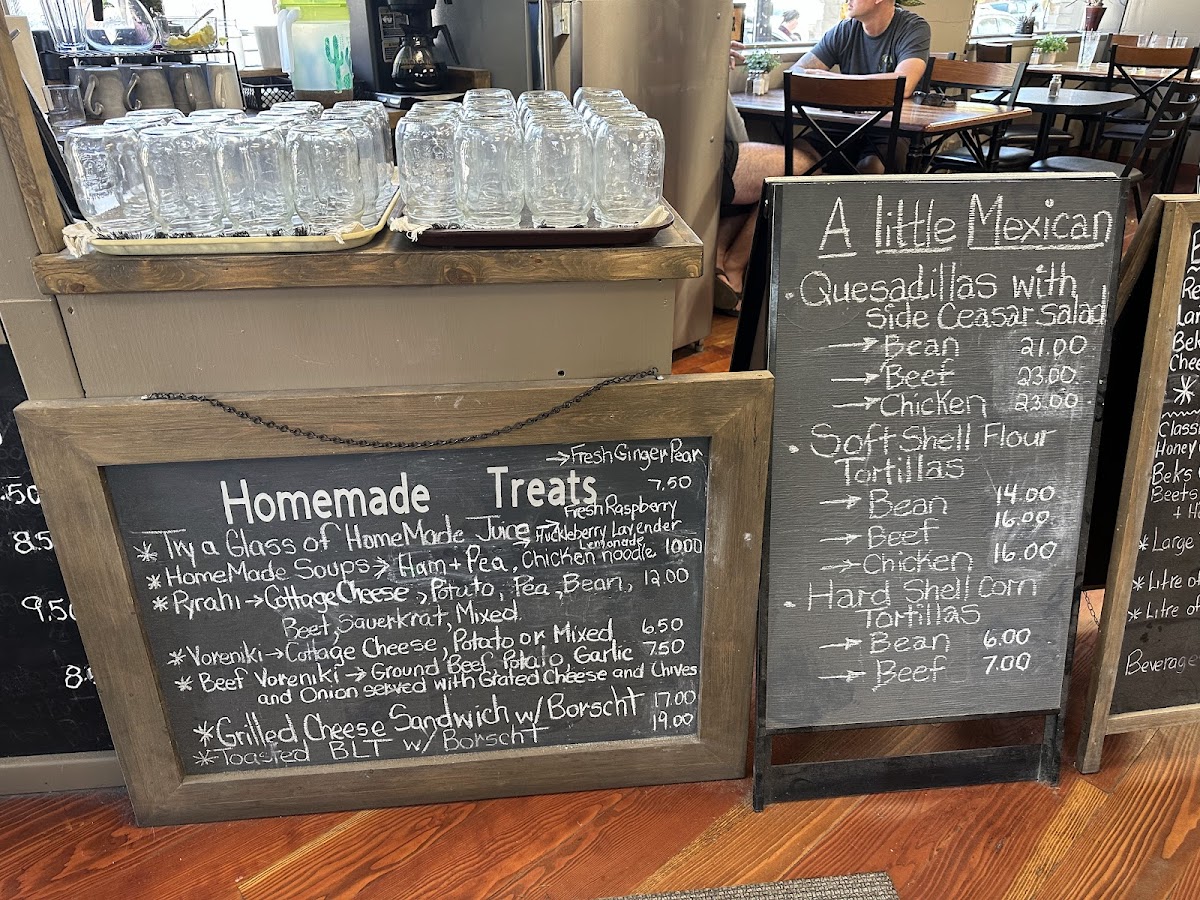 .50
8.5
9.50
8.
→Fresh Ginger Pear
Homemade Treats
7.50
Fresh Raspberry
* Try a Glass of HomeMade Juice → Huckleberry Lavender
→ Lemonade
* HomeMade Soups → Ham + Pea, Chicken noodle 10.00
* Pyrahi → Cottage Cheese, Potato, Pea, Bean, 12.00
Beet, Sauerkrat, Mixed
* Voreniki → Cottage Cheese, Potato or Mixed 6.50
* Beef Voreniki → Ground Beef, Potato, Garlic 7.50
and Onion served with Grated Cheese and Chives
* Grilled Cheese Sandwich w/ Borscht 17.00
* Toasted BLT w/ Borscht 19.00
A little Mexican
· Quesadillas with
side Ceasar Salad
→ Bean 21.00
→ Beef 23.00
→ Chicken 23.00
· Soft Shell Flour
Tortillas
→ Bean 14.00
→ Beef 16.00
→ Chicken 16.00
· Hard Shell Corn
Tortillas
→ Bean 6.00
→ Beef 7.00
Re
Lar
Bek
Chee
*
Classi
Honey
Beks
Beets
+ H
* Large
* Litre o
* Litre o
Beverage